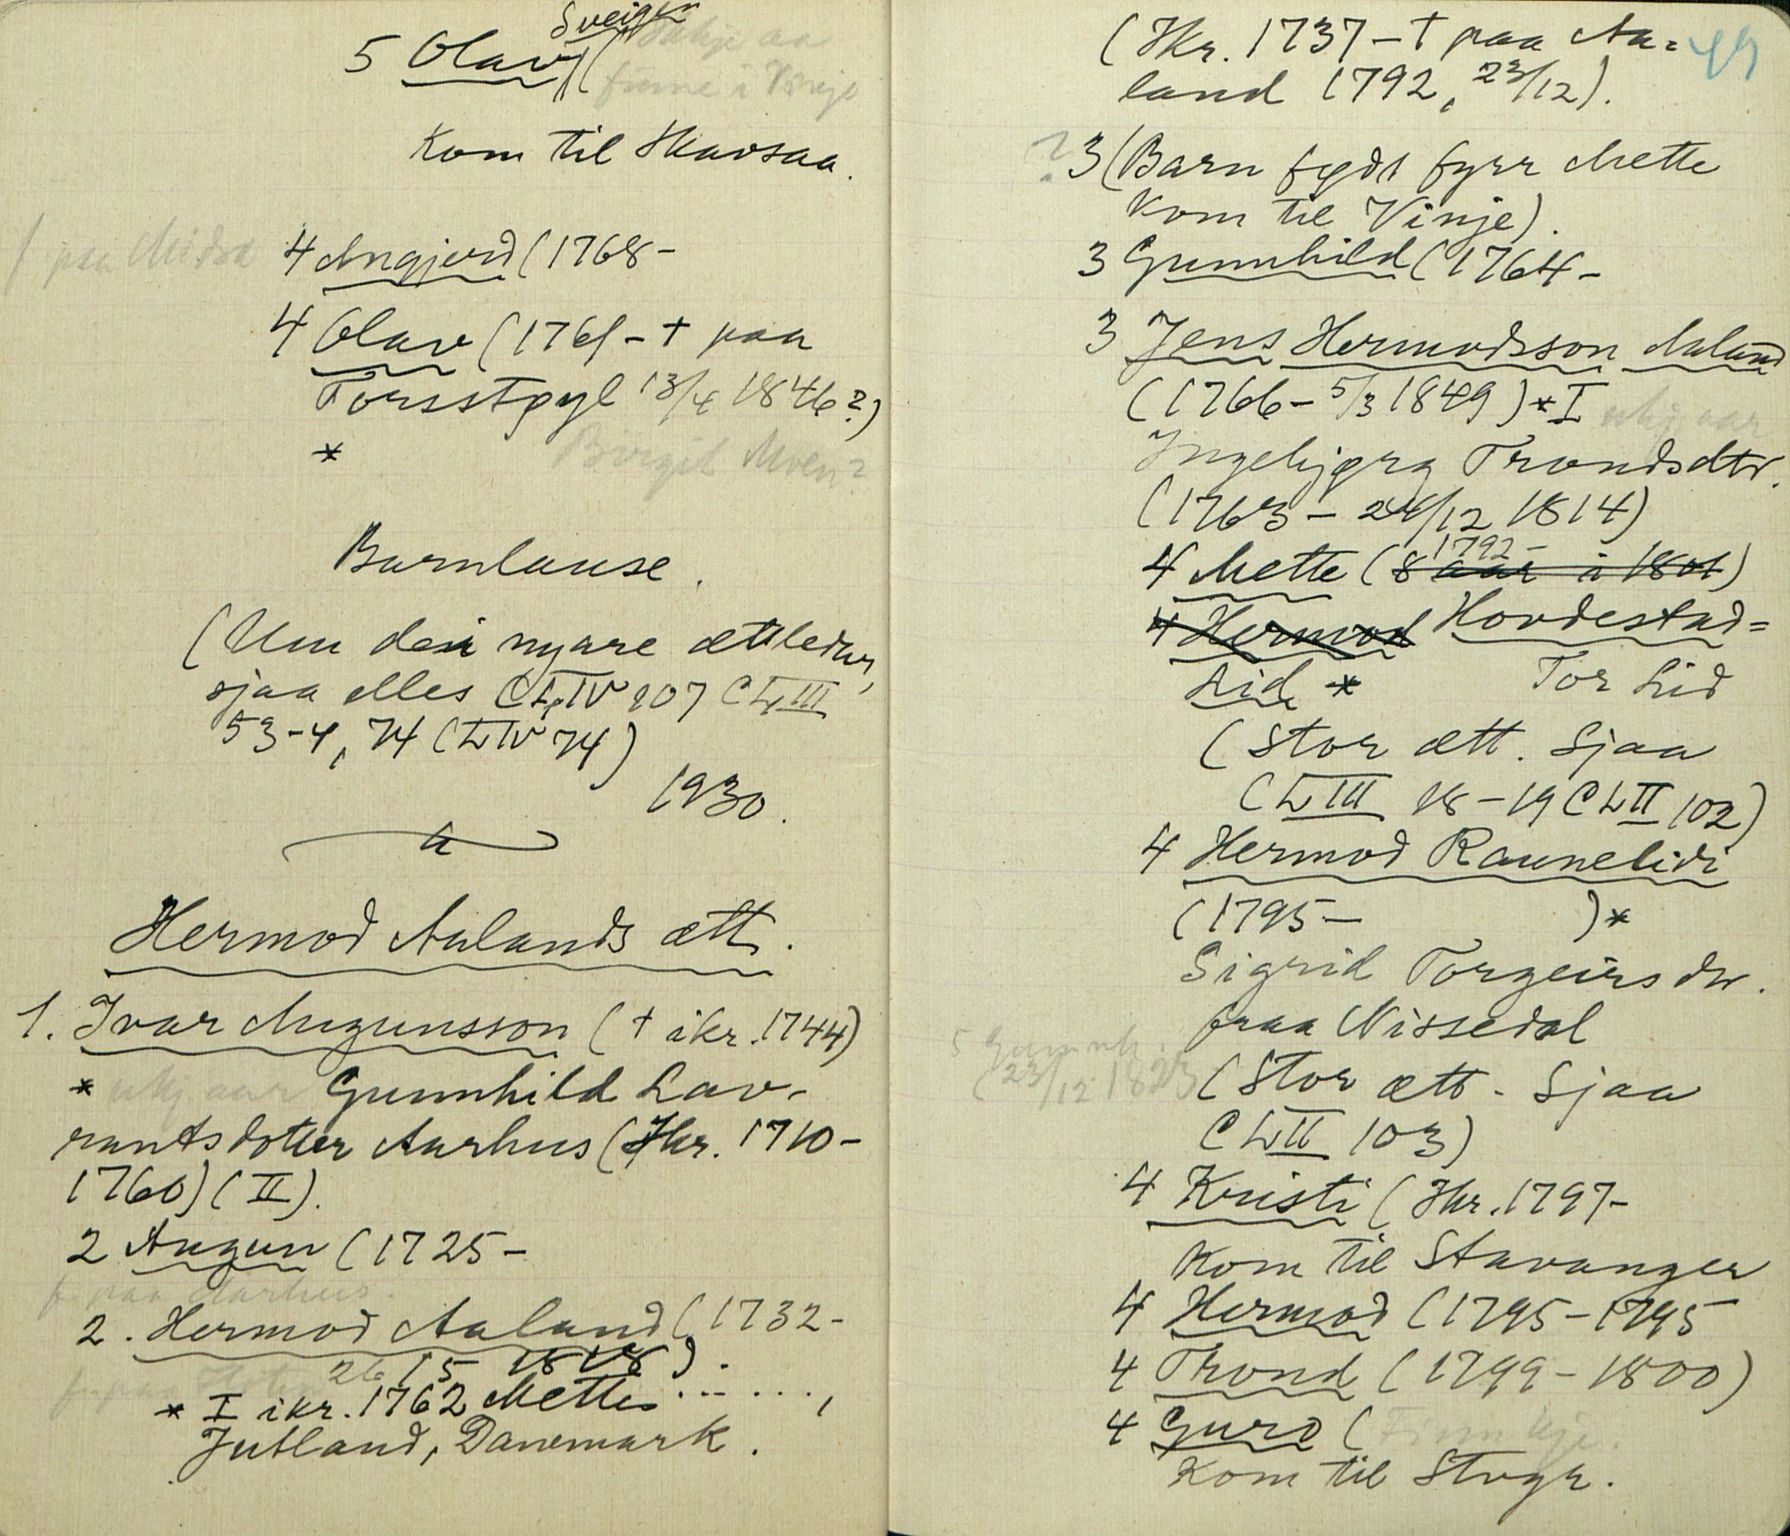 Sveigen
5 Olav ((
Kom til Skavsaa.
paa Midsæ
4 Angjerd (1768-
4 Olav (1761 - † paa
Torsstøyl 13/4 1846?)
* Birgit Moen?
Barnlause.
(Um dei nyare ættleder,
sjaa elles CLIV 207 CLIII
53-4, 74 (LIV 74)
1930.
Hermod Aalands ætt.
1. Ivar Augunsson († ikr. 1744)
* ukj aar Gunnhild Lav-
rantsdotter Aarhus (Ikr. 1710-
1760) (II).
2 Augun (1725-
f. paa Aarhus.
2. Hermod Aaland (1732-
26/5 1818).
* I ikr. 1762 Mette ......,
Jutland, Danemark.
49
(Ikr. 1737 - † paa Aa=
land 1792, 23/12).
? 3 (Barn født fyrr Mette
kom til Vinje).
3 Gunnhild (1764-
3 Jens Hermodsson Aaland
(1766 - 5/3 1849) * I ukj. aar
Ingebjørg Trondsdtr.
(1763 - 24/12 1814)
1792-
4 Mette (8 aar i 1801)
4 Hermod Hovdestad=
Lid * Tor Lid
(Stor ætt. Sjaa
CLIII 18-19 CLII 102)
4 Hermod Raunelidi
(1795- )*
Sigrid Torgeirsdr.
fraa Nissedal
5 Gunnh.
(23/12 1823
(Stor ætt. Sjaa
CLII 103)
4 Kristi (Ikr. 1797-
Kom til Stavanger
4 Hermod (1795-1795
4 Trond (1799-1800)
4 Guro (
Kom til Stvgr.